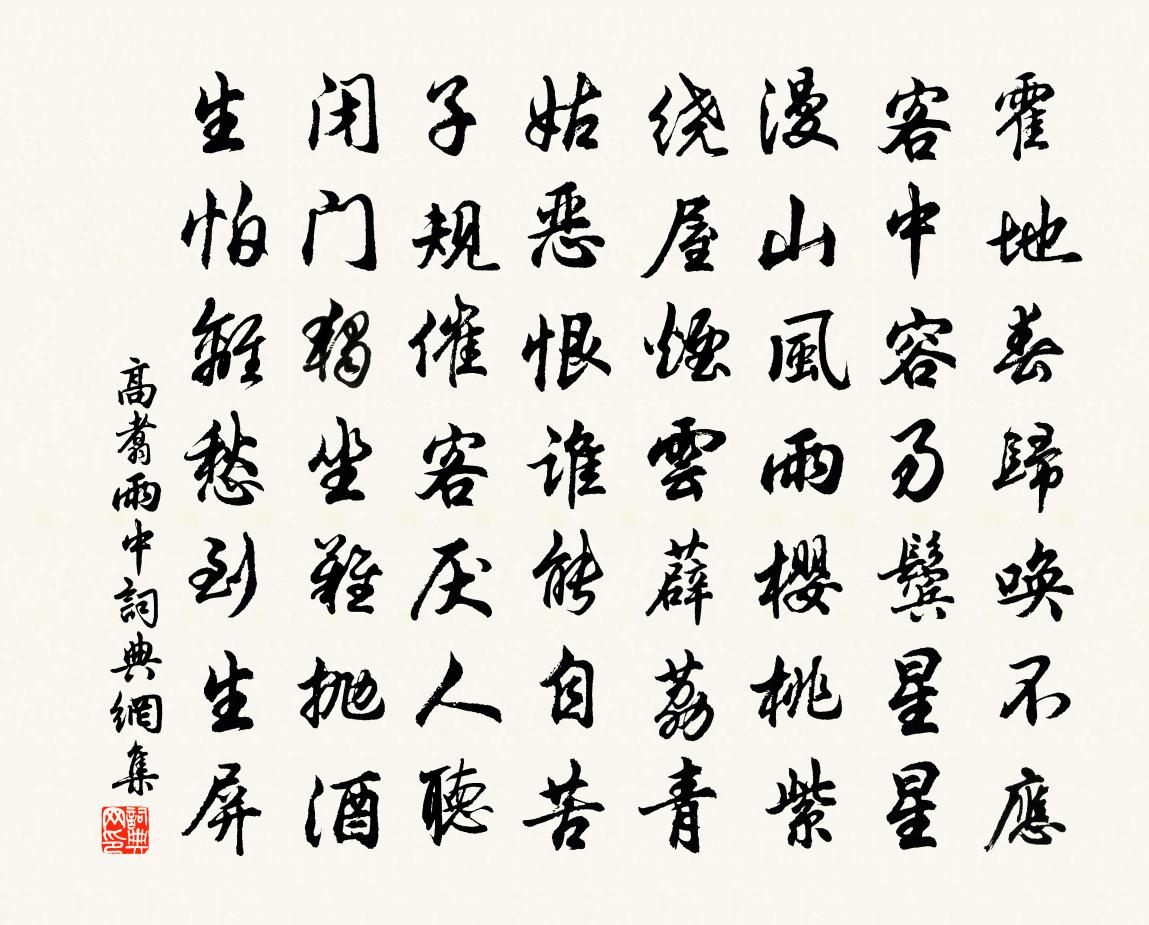 霍地春歸喚不應
客中容易鬢星星
漫山風雨櫻桃紫
绕屋煙雲薜荔青
姑惡恨誰能自苦
子規催客厌人聽
闭门獨坐難抛酒
生怕離愁到生屏
高翥雨中詞典網集
詞典网印